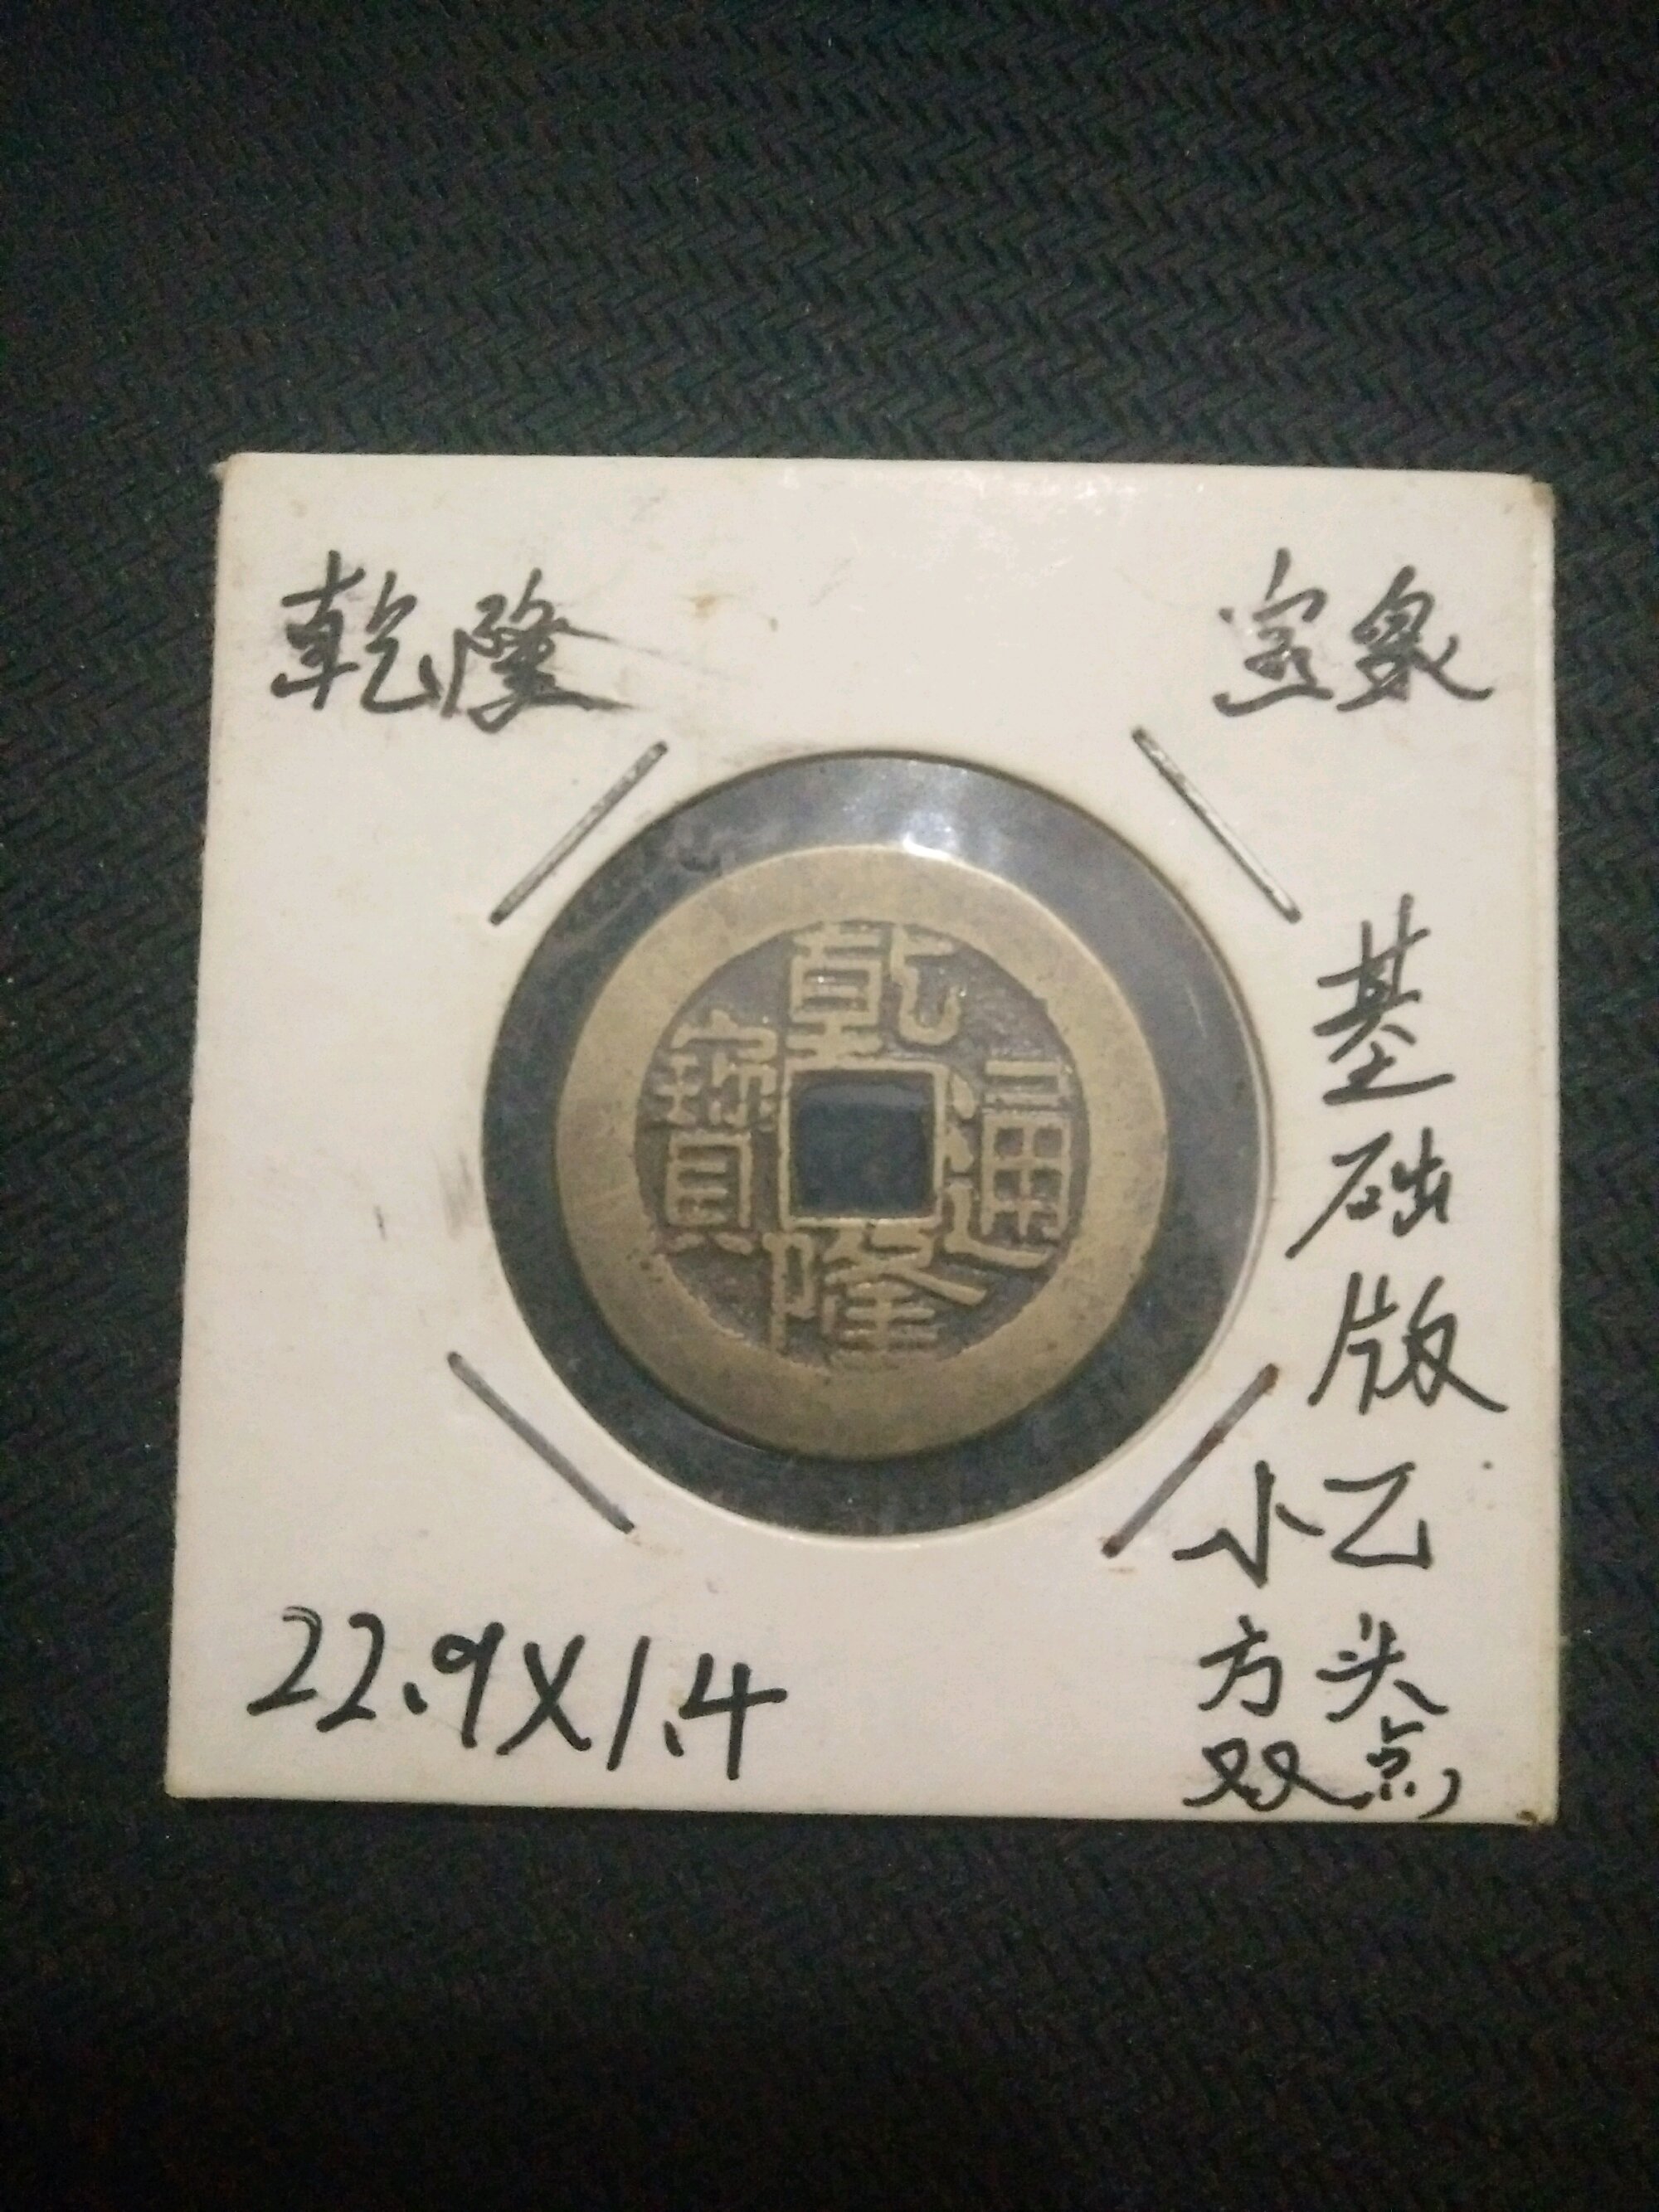 乾隆
宝泉
乾隆通寳
基础版
小乙
方头
双点
22.9X1.4